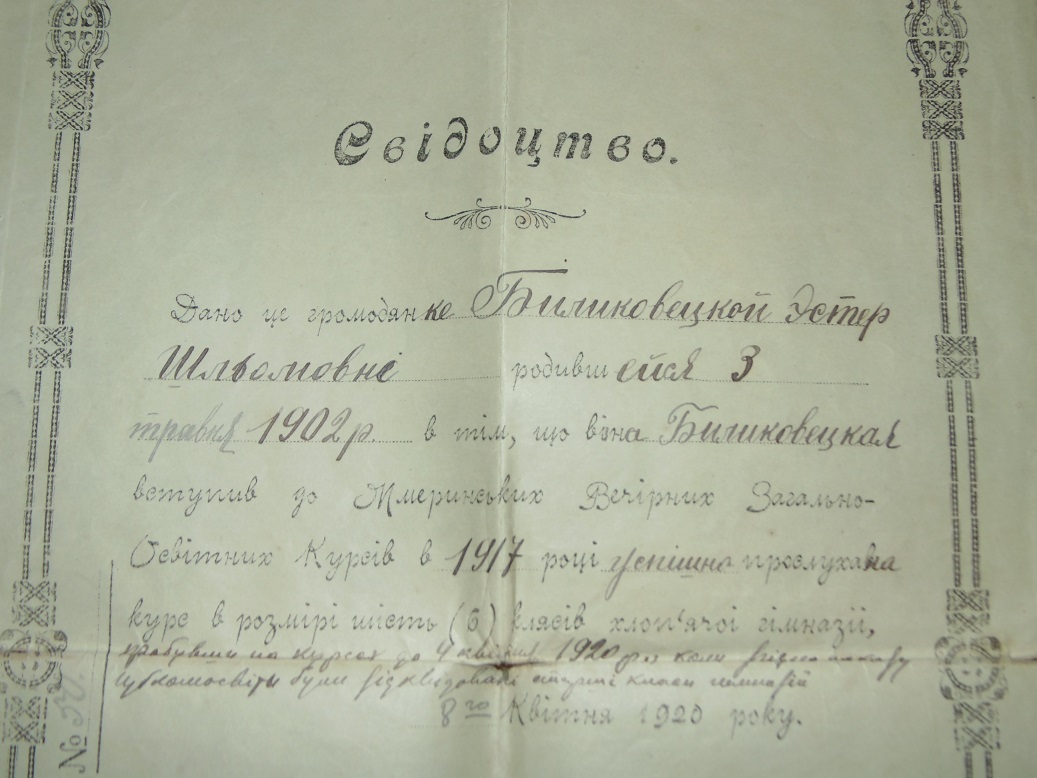 Свідоцтво.
Дано це громодянке Биликовецкой Эстер
Шльомовні родившейся 3
травня 1902 р. в тім, що вона Биликовецкая
вступив до Жмеринських Вечірних Загально-
Освітних Курсів в 1917 році успішно прослухала
курс в розмірі шість (6) клясів хлоп'ячої гімназії,
пробувши на курсах до 4 квітня 1920 р., коли згідно наказу
Губнаросвіти були ліквидовані старші класи гимназій
8го Квітня 1920 року.
№